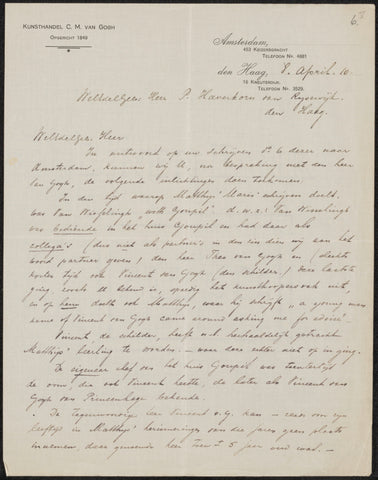 6.
KUNSTHANDEL C. M. VAN GOGH
OPGERICHT 1849
Amsterdam,
453 KEIZERSGRACHT
TELEFOON Nr. 4881
den Haag, 8. April. 10
16 KNEUTERDIJK.
TELEFOON Nr. 3529.
WelEdelgeb. Heer P. Haverkorn van Rijsewijk,
den Haag.
WelEdelgeb. Heer
In antwoord op uw schrijven d.d. dezer naar
Amsterdam, kunnen wij U, na bespreking met den heer
van Gogh, de volgende inlichtingen doen toekomen.
In den tijd waarop Matthijs Maris' schrijven doelt
was Van Wisselingh, with Goupil: d.w.z. Van Wisselingh
was bediende in het huis Goupil en had daar als
collega's (dus niet als partners in den zin dien wij aan het
woord partner geven) den heer Theo van Gogh en (slechts
korten tijd) ook Vincent van Gogh (den schilder). Deze laatste
ging, zooals U bekend is, spoedig het kunsthoopers vak uit,
en op hem doelt ook Matthijs, waar hij schrijft „a young man
name of Vincent van Gogh came around asking me for advice".
Vincent, de schilder, heeft wel herhaaldelijk getracht
Matthijs' leerling te worden. — waar deze echter niet op in ging.
Te eigenaar chef van het huis Goupil was
de oom, die ook Vincent heette, de later als Vincent van
Gogh van Princenhage bekende.
De tegenwoordige heer Vincent v. G. kan — reeds om zijn
leeftijd in Matthijs' herinneringen van die jaren geen plaats
innemen, daar genoemde heer toen ± 5 jaar oud was. —